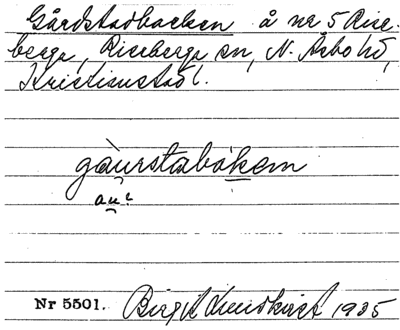 Gårdstadbacken å nr 5 Rise-
berga, Riseberga sn, N. Åsbo hd,
Kristianst. l.
gàurstabákem
au?
Nr 5501. Birgit Lundkvist 1935